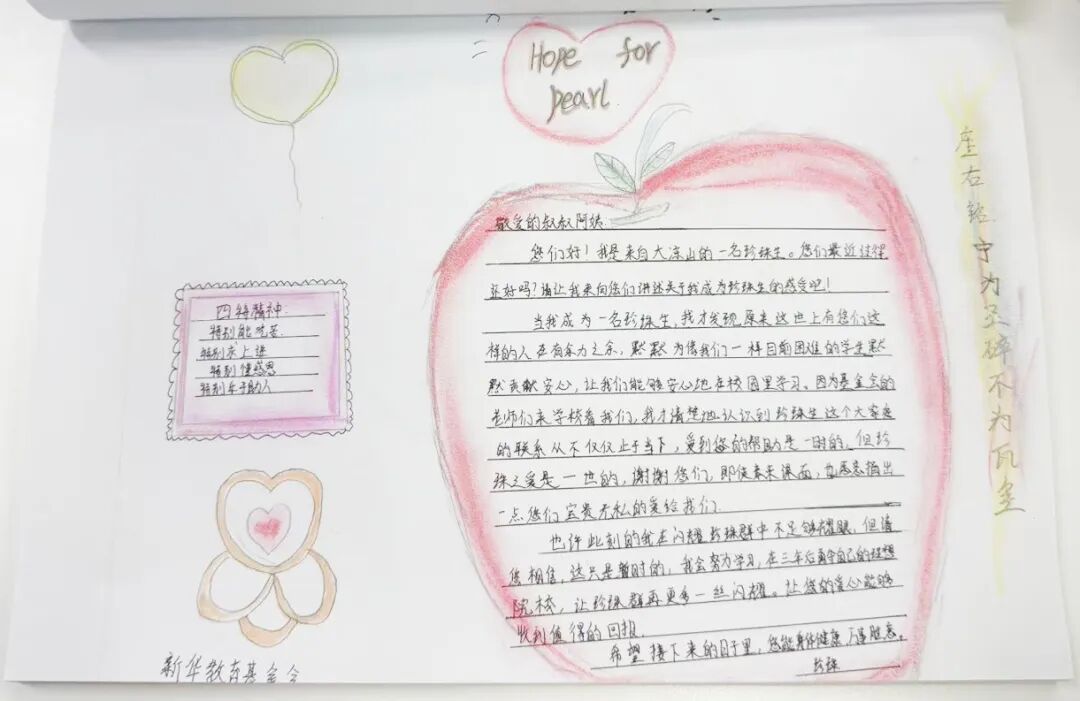 Hope for
pearl
敬爱的叔叔阿姨:
您们好！我是来自大凉山的一名珍珠生。您们最近过得
还好吗?请让我来向您们讲述关于我成为珍珠生的感受吧！
当我成为一名珍珠生,我才发现原来这世上有您们这
样的人在有余力之余,默默为像我们一样目前困难的学生默
默贡献安心,让我们能够安心地在校园里学习。因为基金会的
老师们来学校看我们,我才清楚地认识到珍珠生这个大家庭
的联系从不仅仅止于当下,受到您的帮助是一时的,但珍
珠之爱是一世的,谢谢您们,即使素未谋面,也愿意捎出
一点您们宝贵无私的爱给我们.
也许此刻的我在闪耀珍珠群中不足够耀眼,但请
您相信,这只是暂时的,我会努力学习,在三年后勇夺自己的理想
院校,让珍珠群再更多一丝闪耀。让您的爱心能够
收到值得的回报.
希望接下来的日子里,您能身体健康,万事胜意。
珍珠
四特精神:
特别能吃苦
特别求上进
特别懂感恩
特别乐于助人
新华教育基金会
座右铭宁为玉碎不为瓦全